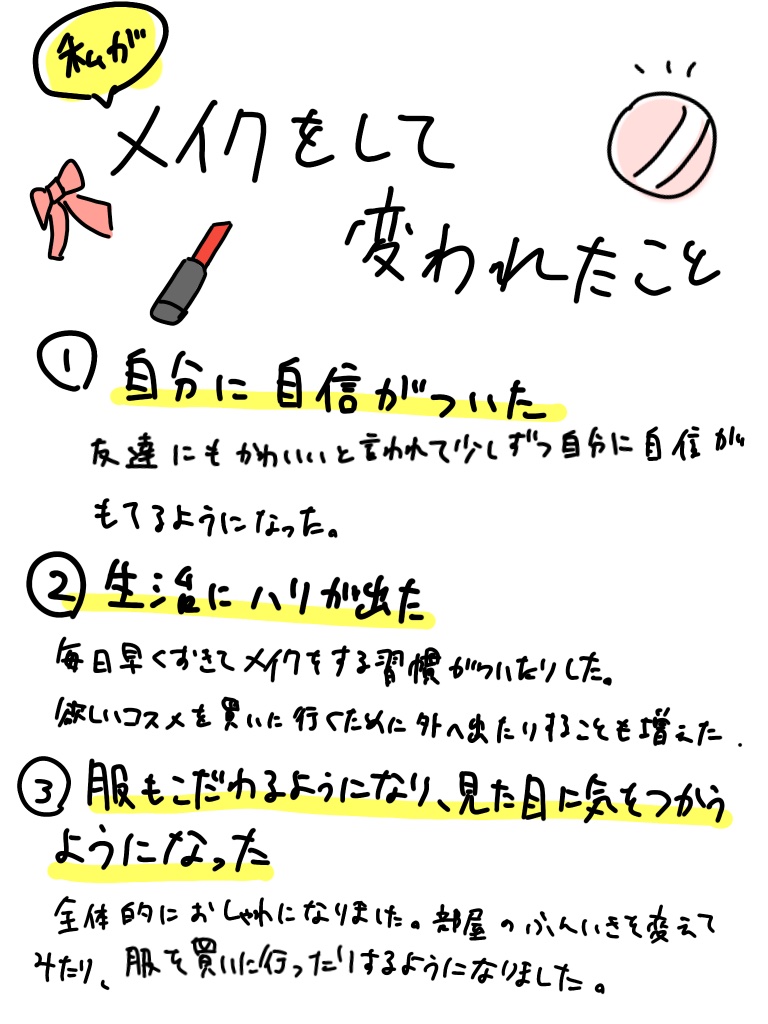 私が
メイクをして
変われたこと
① 自分に自信がついた
友達にもかわいいと言われて少しずつ自分に自信が
もてるようになった。
② 生活にハリが出た
毎日早くおきてメイクをする習慣がついたりした。
欲しいコスメを買いに行くために外へ出たりすることも増えた.
③ 服もこだわるようになり、見た目に気をつかう
ようになった
全体的におしゃれになりました。部屋のふんいきを変えて
みたり、服を買いに行ったりするようになりました。